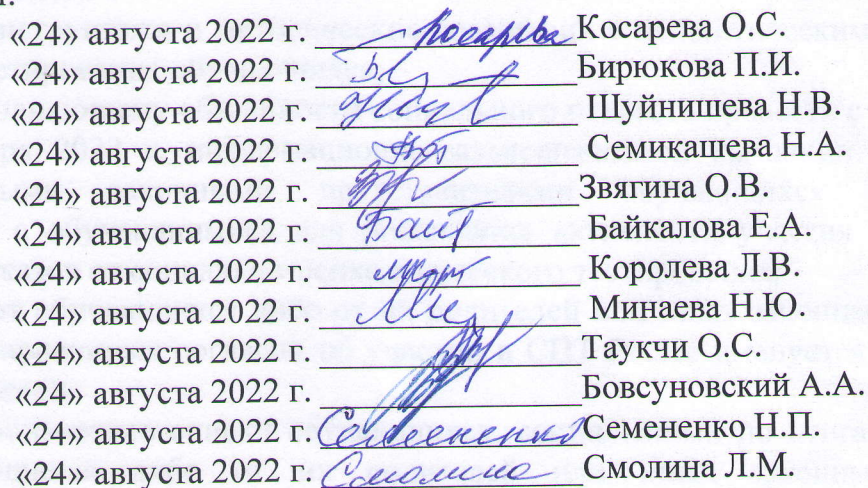 «24» августа 2022 г. Косарева Косарева О.С.
«24» августа 2022 г. Бирюкова П.И.
«24» августа 2022 г. Шуйнишева Н.В.
«24» августа 2022 г. Семикашева Н.А.
«24» августа 2022 г. Звягина О.В.
«24» августа 2022 г. Байкалова Е.А.
«24» августа 2022 г. Королева Л.В.
«24» августа 2022 г. Минаева Н.Ю.
«24» августа 2022 г. Таукчи О.С.
«24» августа 2022 г. Бовсуновский А.А.
«24» августа 2022 г. Семененко Семененко Н.П.
«24» августа 2022 г. Смолина Смолина Л.М.